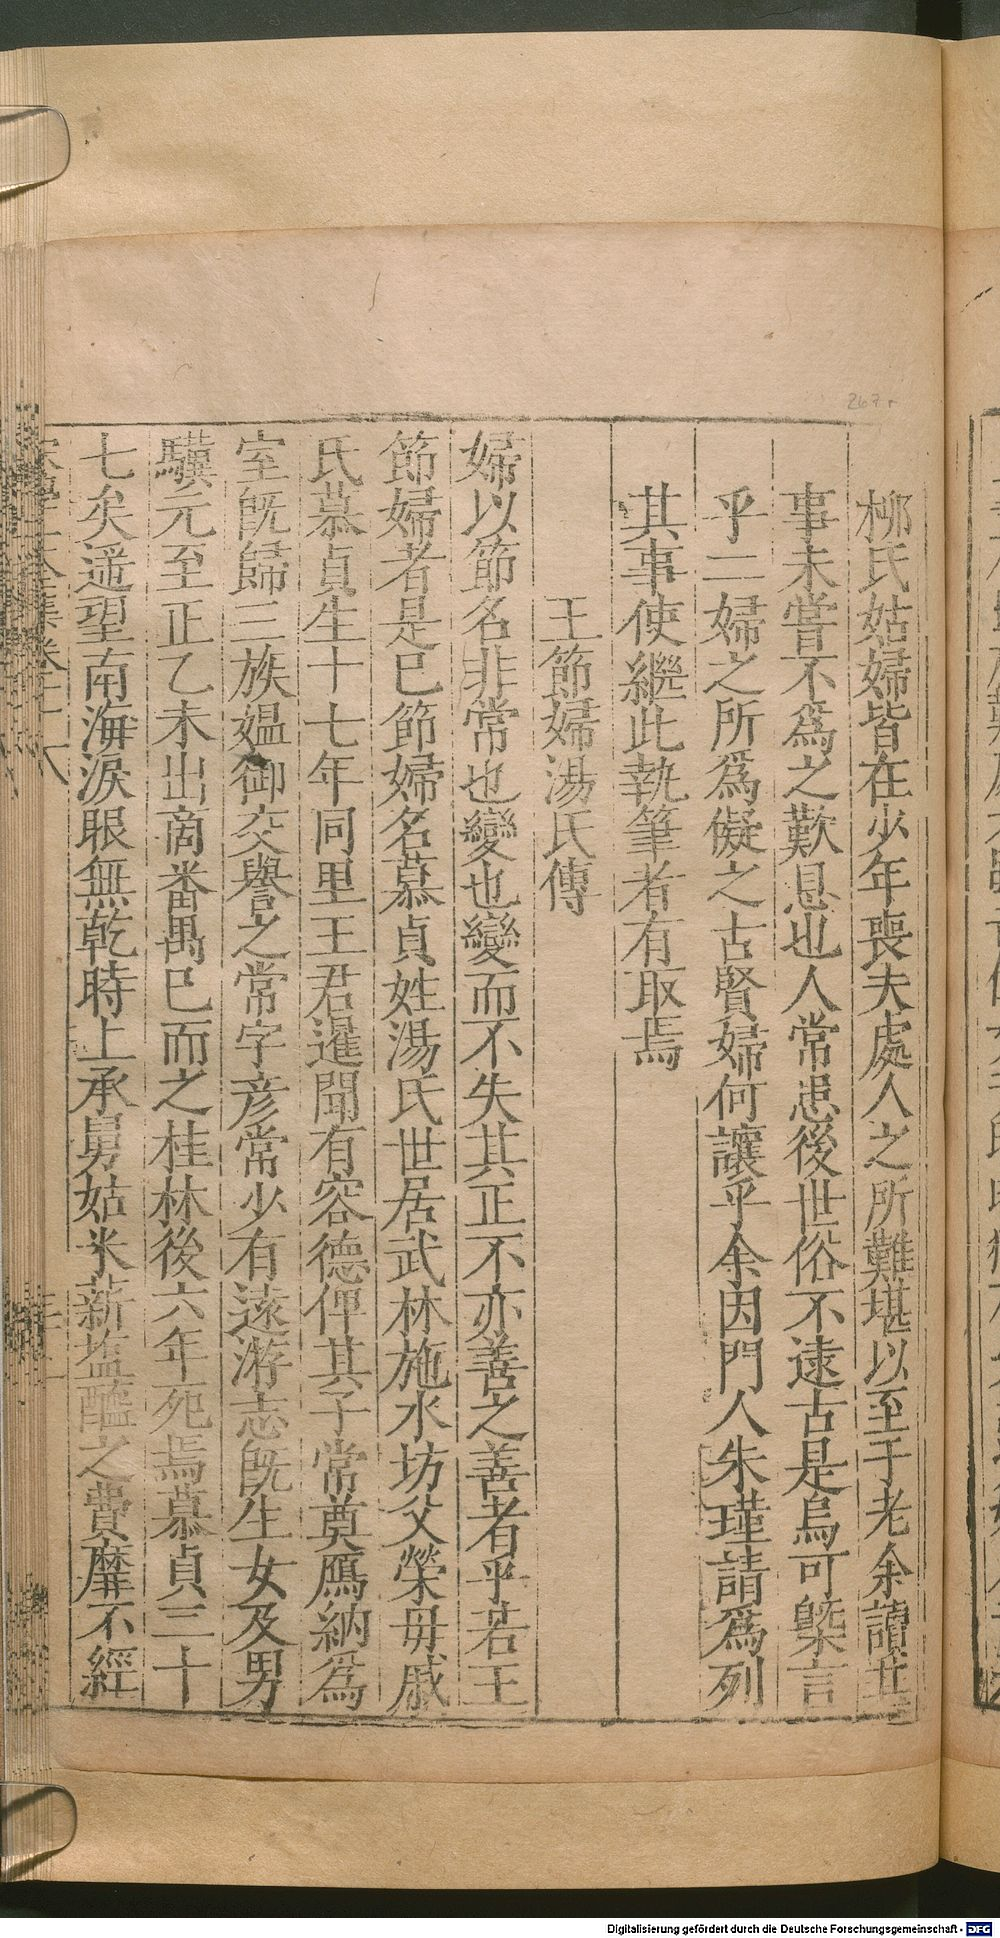 柳氏姑婦皆在少年喪夫處人之所難堪以至于老余讀其
事未嘗不爲之歎息也人常患後世俗不逮古是烏可槩言
乎二婦之所爲儗之古賢婦何讓乎余因門人朱瑾請爲列
其事使繼此執筆者有取焉
王節婦湯氏傳
婦以節名非常也變也變而不失其正不亦善之善者乎若王
節婦者是已節婦名慕貞姓湯氏世居武林施水坊父榮毋戚
氏慕貞生十七年同里王君暹聞有容德俾其子常奠鴈納爲
室旣歸三族媼御交譽之常字彦常少有遠游志旣生女及男
驥元至正乙未出啇番禺巳而之桂林後六年死焉慕貞三十
七矣遥望南海淚眼無乾時上承舅姑米薪塩醯之費靡不經
267r
Digitalisierung gefördert durch die Deutsche Forschungsgemeinschaft - DFG